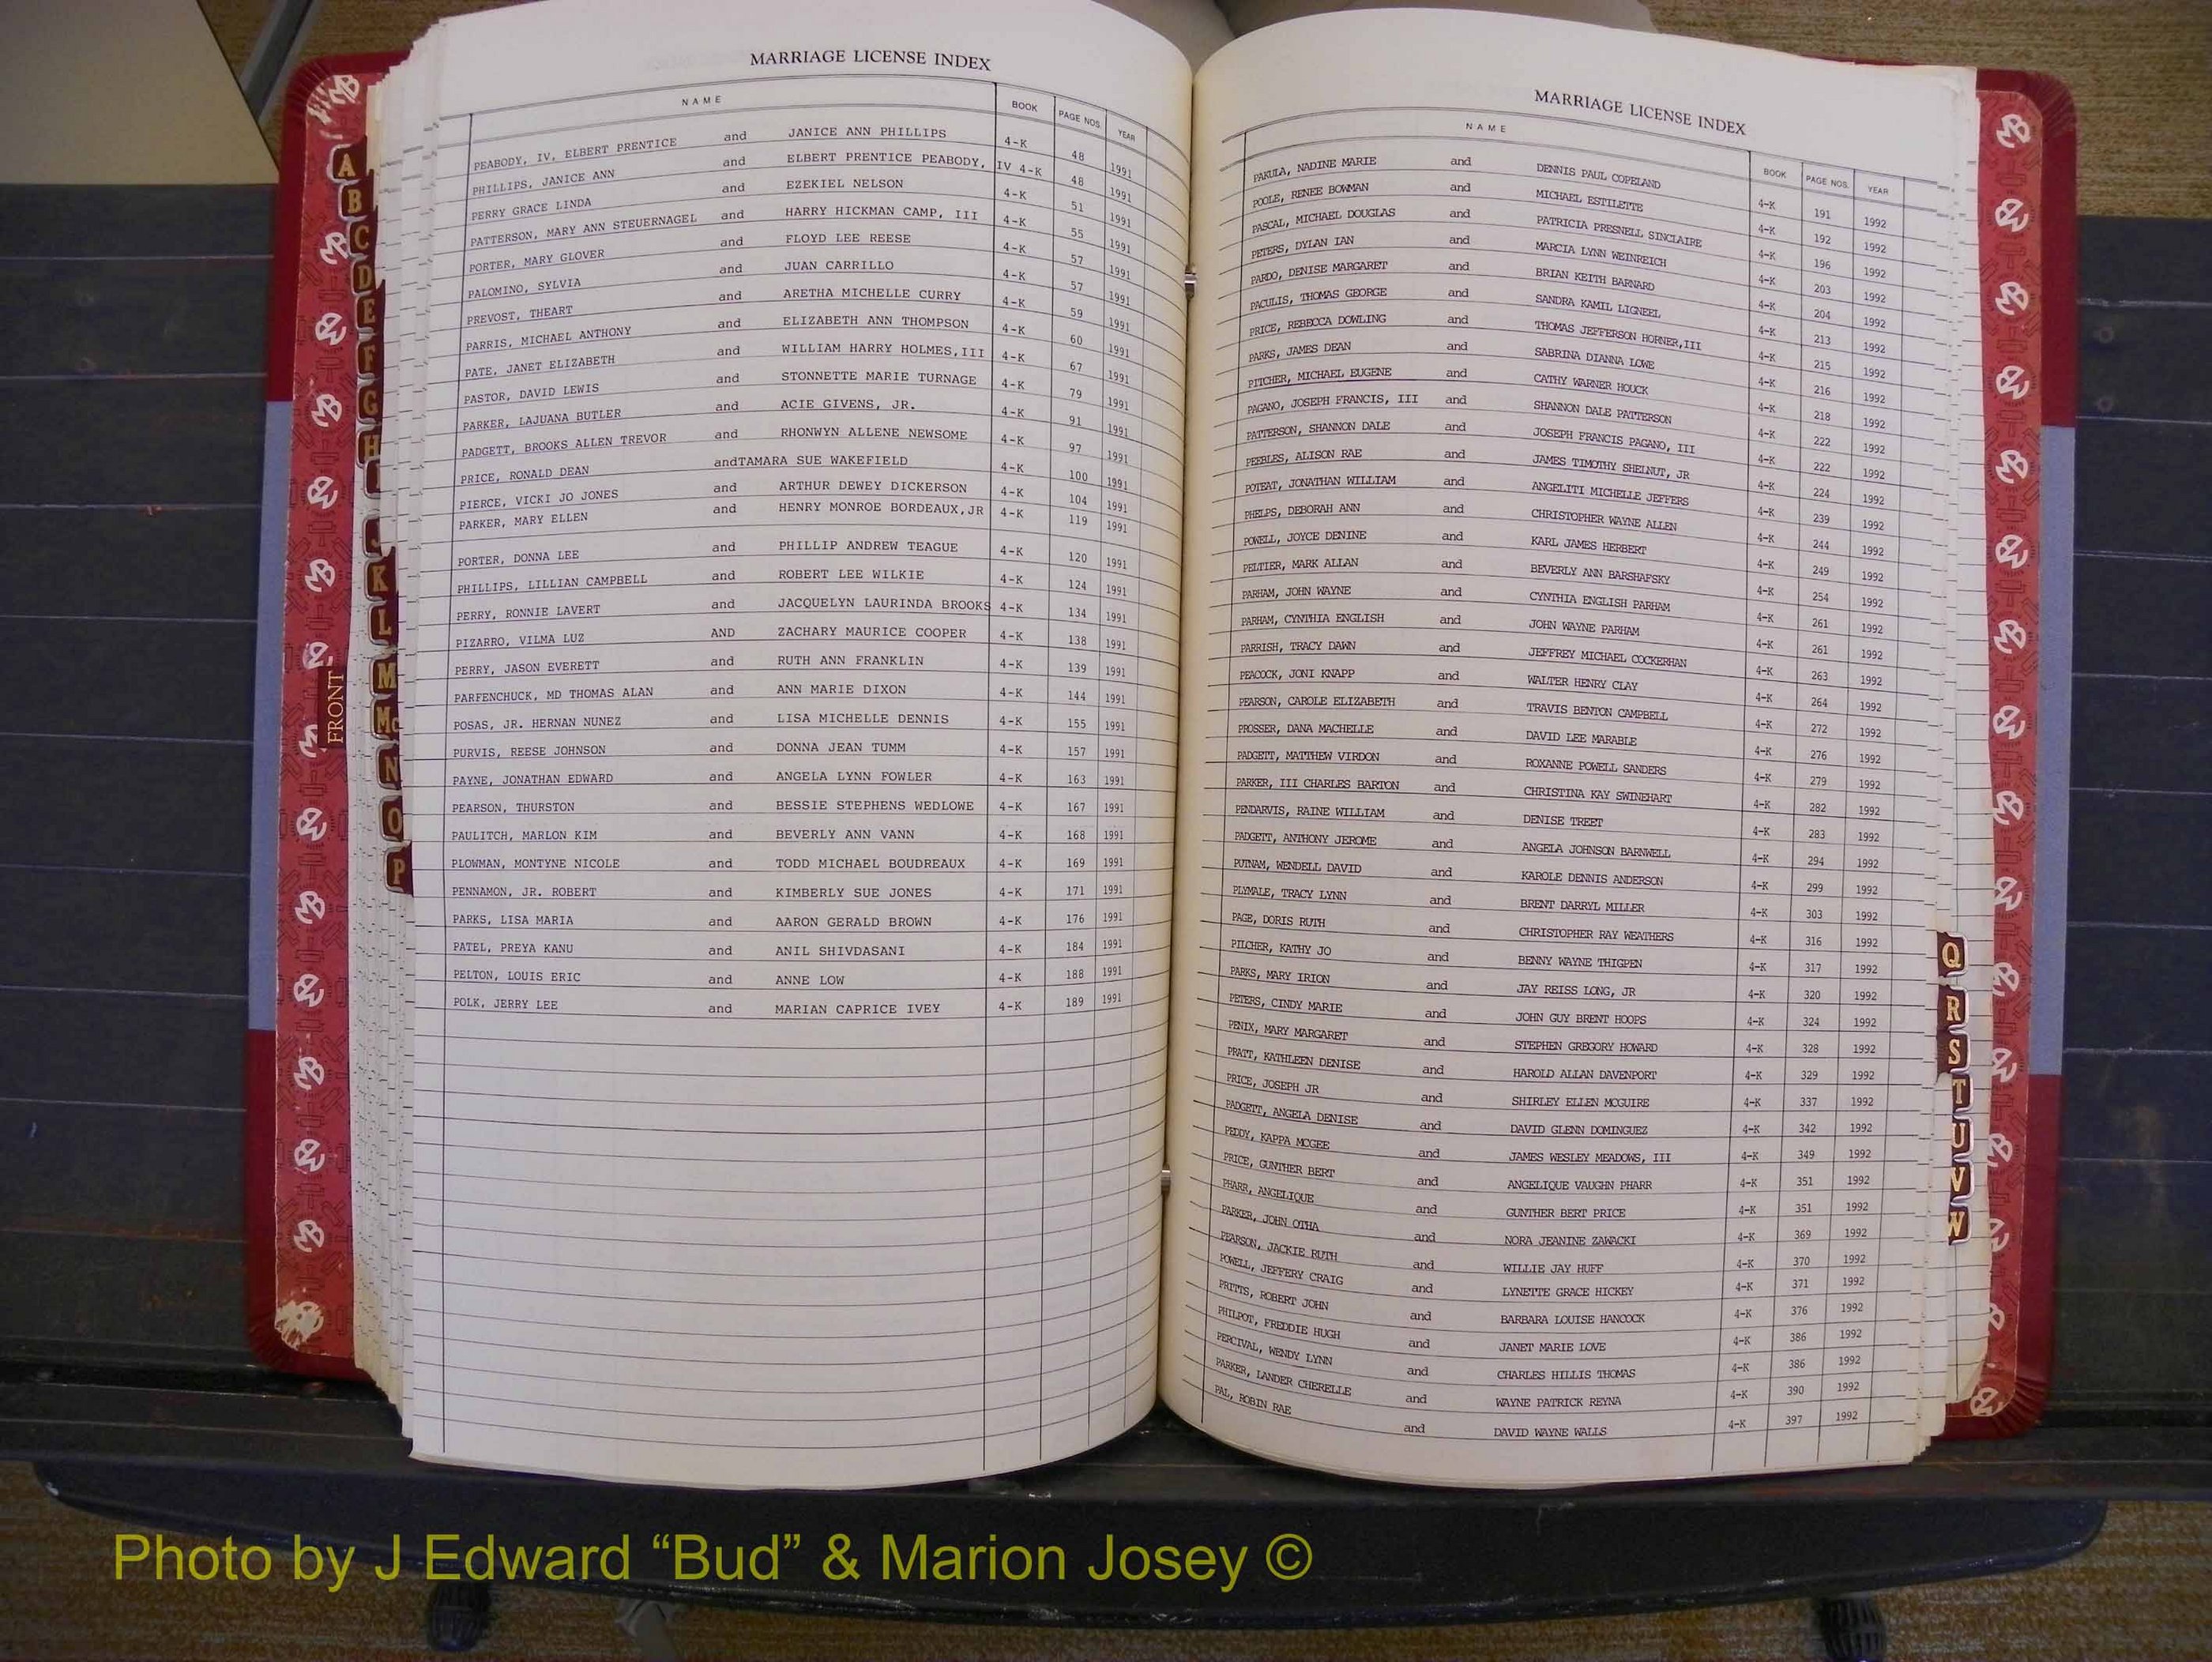 MARRIAGE LICENSE INDEX
NAME BOOK PAGE NOS. YEAR
PEABODY, IV, ELBERT PRENTICE and JANICE ANN PHILLIPS 4-K 48 1991
PHILLIPS, JANICE ANN and ELBERT PRENTICE PEABODY, IV 4-K 48 1991
PERRY GRACE LINDA and EZEKIEL NELSON 4-K 51 1991
PATTERSON, MARY ANN STEUERNAGEL and HARRY HICKMAN CAMP, III 4-K 55 1991
PORTER, MARY GLOVER and FLOYD LEE REESE 4-K 57 1991
PALOMINO, SYLVIA and JUAN CARRILLO 4-K 57 1991
PREVOST, THEART and ARETHA MICHELLE CURRY 4-K 59 1991
PARRIS, MICHAEL ANTHONY and ELIZABETH ANN THOMPSON 4-K 60 1991
PATE, JANET ELIZABETH and WILLIAM HARRY HOLMES,III 4-K 67 1991
PASTOR, DAVID LEWIS and STONNETTE MARIE TURNAGE 4-K 79 1991
PARKER, LAJUANA BUTLER and ACIE GIVENS, JR. 4-K 91 1991
PADGETT, BROOKS ALLEN TREVOR and RHONWYN ALLENE NEWSOME 4-K 97 1991
PRICE, RONALD DEAN andTAMARA SUE WAKEFIELD 4-K 100 1991
PIERCE, VICKI JO JONES and ARTHUR DEWEY DICKERSON 4-K 104 1991
PARKER, MARY ELLEN and HENRY MONROE BORDEAUX,JR 4-K 119 1991
PORTER, DONNA LEE and PHILLIP ANDREW TEAGUE 4-K 120 1991
PHILLIPS, LILLIAN CAMPBELL and ROBERT LEE WILKIE 4-K 124 1991
PERRY, RONNIE LAVERT and JACQUELYN LAURINDA BROOKS 4-K 134 1991
PIZARRO, VILMA LUZ AND ZACHARY MAURICE COOPER 4-K 138 1991
PERRY, JASON EVERETT and RUTH ANN FRANKLIN 4-K 139 1991
PARFENCHUCK, MD THOMAS ALAN and ANN MARIE DIXON 4-K 144 1991
POSAS, JR. HERNAN NUNEZ and LISA MICHELLE DENNIS 4-K 155 1991
PURVIS, REESE JOHNSON and DONNA JEAN TUMM 4-K 157 1991
PAYNE, JONATHAN EDWARD and ANGELA LYNN FOWLER 4-K 163 1991
PEARSON, THURSTON and BESSIE STEPHENS WEDLOWE 4-K 167 1991
PAULITCH, MARLON KIM and BEVERLY ANN VANN 4-K 168 1991
PLOWMAN, MONTYNE NICOLE and TODD MICHAEL BOUDREAUX 4-K 169 1991
PENNAMON, JR. ROBERT and KIMBERLY SUE JONES 4-K 171 1991
PARKS, LISA MARIA and AARON GERALD BROWN 4-K 176 1991
PATEL, PREYA KANU and ANIL SHIVDASANI 4-K 184 1991
PELTON, LOUIS ERIC and ANNE LOW 4-K 188 1991
POLK, JERRY LEE and MARIAN CAPRICE IVEY 4-K 189 1991
MARRIAGE LICENSE INDEX
NAME BOOK PAGE NOS. YEAR
PAKULA, NADINE MARIE and DENNIS PAUL COPELAND 4-K 191 1992
POOLE, RENEE BOWMAN and MICHAEL ESTILETTE 4-K 192 1992
PASCAL, MICHAEL DOUGLAS and PATRICIA PRESNELL SINCLAIRE 4-K 196 1992
PETERS, DYLAN IAN and MARCIA LYNN WEINREICH 4-K 203 1992
PARDO, DENISE MARGARET and BRIAN KEITH BARNARD 4-K 204 1992
PACULIS, THOMAS GEORGE and SANDRA KAMIL LIGNEEL 4-K 213 1992
PRICE, REBECCA DOWLING and THOMAS JEFFERSON HORNER,III 4-K 215 1992
PARKS, JAMES DEAN and SABRINA DIANNA LOWE 4-K 216 1992
PITCHER, MICHAEL EUGENE and CATHY WARNER HOUCK 4-K 218 1992
PAGANO, JOSEPH FRANCIS, III and SHANNON DALE PATTERSON 4-K 222 1992
PATTERSON, SHANNON DALE and JOSEPH FRANCIS PAGANO, III 4-K 222 1992
PEEBLES, ALISON RAE and JAMES TIMOTHY SHELNUT, JR 4-K 224 1992
POTEAT, JONATHAN WILLIAM and ANGELITI MICHELLE JEFFERS 4-K 239 1992
PHELPS, DEBORAH ANN and CHRISTOPHER WAYNE ALLEN 4-K 244 1992
POWELL, JOYCE DENINE and KARL JAMES HERBERT 4-K 249 1992
PELTIER, MARK ALLAN and BEVERLY ANN BARSHAFSKY 4-K 254 1992
PARHAM, JOHN WAYNE and CYNTHIA ENGLISH PARHAM 4-K 261 1992
PARHAM, CYNTHIA ENGLISH and JOHN WAYNE PARHAM 4-K 261 1992
PARRISH, TRACY DAWN and JEFFREY MICHAEL COCKERHAN 4-K 263 1992
PEACOCK, JONI KNAPP and WALTER HENRY CLAY 4-K 264 1992
PEARSON, CAROLE ELIZABETH and TRAVIS BENTON CAMPBELL 4-K 272 1992
PROSSER, DANA MACHELLE and DAVID LEE MARABLE 4-K 276 1992
PADGETT, MATTHEW VIRDON and ROXANNE POWELL SANDERS 4-K 279 1992
PARKER, III CHARLES BARTON and CHRISTINA KAY SWINEHART 4-K 282 1992
PENDARVIS, RAINE WILLIAM and DENISE TREET 4-K 283 1992
PADGETT, ANTHONY JEROME and ANGELA JOHNSON BARNWELL 4-K 294 1992
PUTNAM, WENDELL DAVID and KAROLE DENNIS ANDERSON 4-K 299 1992
PLYMALE, TRACY LYNN and BRENT DARRYL MILLER 4-K 303 1992
PAGE, DORIS RUTH and CHRISTOPHER RAY WEATHERS 4-K 316 1992
PILCHER, KATHY JO and BENNY WAYNE THIGPEN 4-K 317 1992
PARKS, MARY IRION and JAY REISS LONG, JR 4-K 320 1992
PETERS, CINDY MARIE and JOHN GUY BRENT HOOPS 4-K 324 1992
PENIX, MARY MARGARET and STEPHEN GREGORY HOWARD 4-K 328 1992
PRATT, KATHLEEN DENISE and HAROLD ALLAN DAVENPORT 4-K 329 1992
PRICE, JOSEPH JR and SHIRLEY ELLEN MCGUIRE 4-K 337 1992
PADGETT, ANGELA DENISE and DAVID GLENN DOMINGUEZ 4-K 342 1992
PEDDY, KAPPA MCGEE and JAMES WESLEY MEADOWS, III 4-K 349 1992
PRICE, GUNTHER BERT and ANGELIQUE VAUGHN PHARR 4-K 351 1992
PHARR, ANGELIQUE and GUNTHER BERT PRICE 4-K 351 1992
PARKER, JOHN OTHA and NORA JEANINE ZAWACKI 4-K 369 1992
PEARSON, JACKIE RUTH and WILLIE JAY HUFF 4-K 370 1992
POWELL, JEFFERY CRAIG and LYNETTE GRACE HICKEY 4-K 371 1992
PRITTS, ROBERT JOHN and BARBARA LOUISE HANCOCK 4-K 376 1992
PHILPOT, FREDDIE HUGH and JANET MARIE LOVE 4-K 386 1992
PERCIVAL, WENDY LYNN and CHARLES HILLIS THOMAS 4-K 386 1992
PARKER, LANDER CHERELLE and WAYNE PATRICK REYNA 4-K 390 1992
PAL, ROBIN RAE and DAVID WAYNE WALLS 4-K 397 1992
FRONT
A
B
C
D
E
F
G
H
I
J
K
L
M
Mc
N
O
P
Q
R
S
T
U
V
W
Photo by J Edward “Bud” & Marion Josey ©